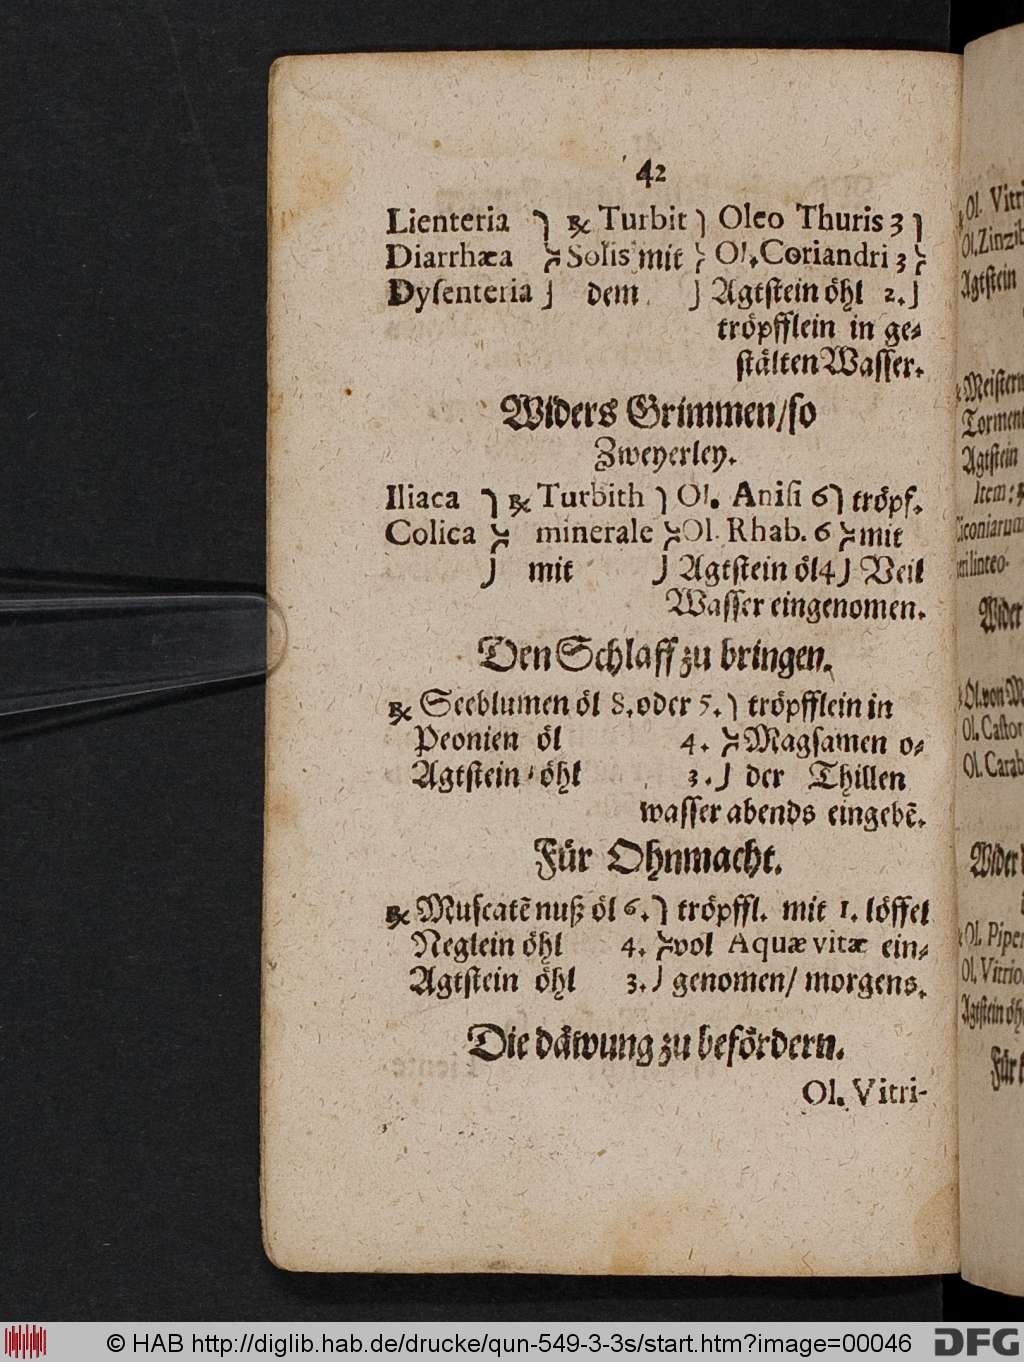 42
Lienteria } ℞ Turbit } Oleo Thuris 3 }
Diarrhæa } Solis mit } Ol. Coriandri 3 }
Dysenteria } dem } Agtstein öhl 2. }
tröpfflein in ge⸗
stälten Wasser.
Widers Grimmen/so
Zweyerley.
Iliaca } ℞ Turbith } Ol. Anisi 6 } tröpf.
Colica } minerale } Ol. Rhab. 6 } mit
} mit } Agtstein öl 4 } Veil
Wasser eingenomen.
Den Schlaff zu bringen.
℞ Seeblumen öl 8. oder 5. } tröpfflein in
Peonien öl 4. } Magsamen o⸗
Agtstein⸗öhl 3. } der Thillen
wasser abends eingebẽ.
Für Ohnmacht.
℞ Muscatẽ nuß öl 6. } tröpffl. mit 1. löffel
Neglein öhl 4. } vol Aquæ vitæ ein⸗
Agtstein öhl 3. } genomen/ morgens.
Die däwung zu befördern.
Ol. Vitri-
Ol. Vitri
Ol. Zinzib
Agtstein
Meistern
Torment
Agtstein
Item:
Wider
Ol. von M
Ol. Castor
Ol. Carab
Wider
Ol. Piper
Ol. Vitrio
Agtstein öh
Für
© HAB http://diglib.hab.de/drucke/qun-549-3-3s/start.htm?image=00046
DFG